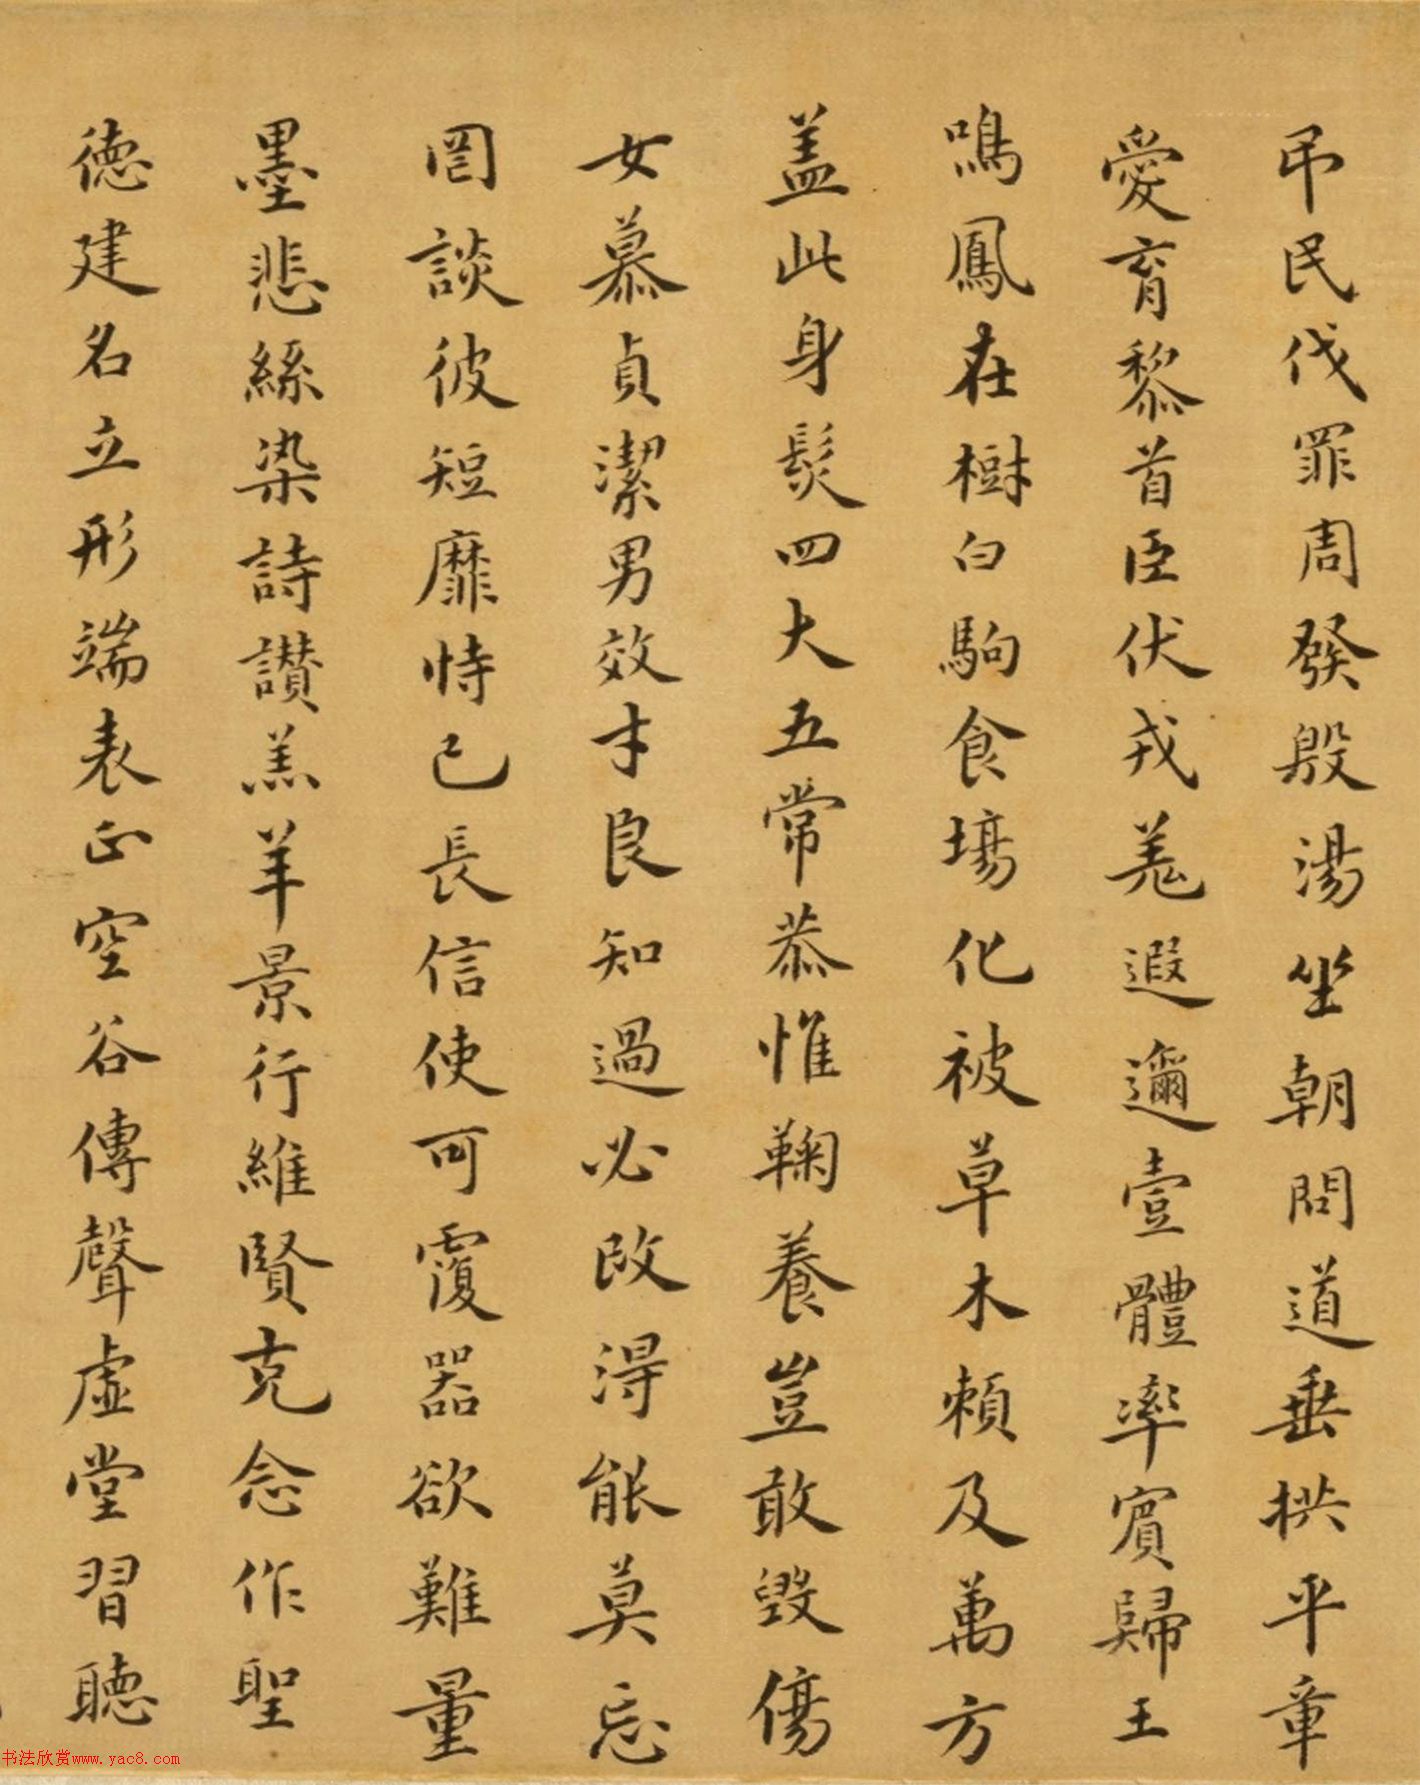 弔民伐罪周發殷湯坐朝問道垂拱平章
愛育黎首臣伏戎羌遐邇壹體率賓歸王
鳴鳳在樹白駒食場化被草木賴及萬方
盖此身髮四大五常恭惟鞠養豈敢毀傷
女慕貞潔男效才良知過必改得能莫忘
罔談彼短靡恃己長信使可覆器欲難量
墨悲絲染詩讃羔羊景行維賢克念作聖
德建名立形端表正空谷傳聲虛堂習聽
书法欣赏www.yac8.com